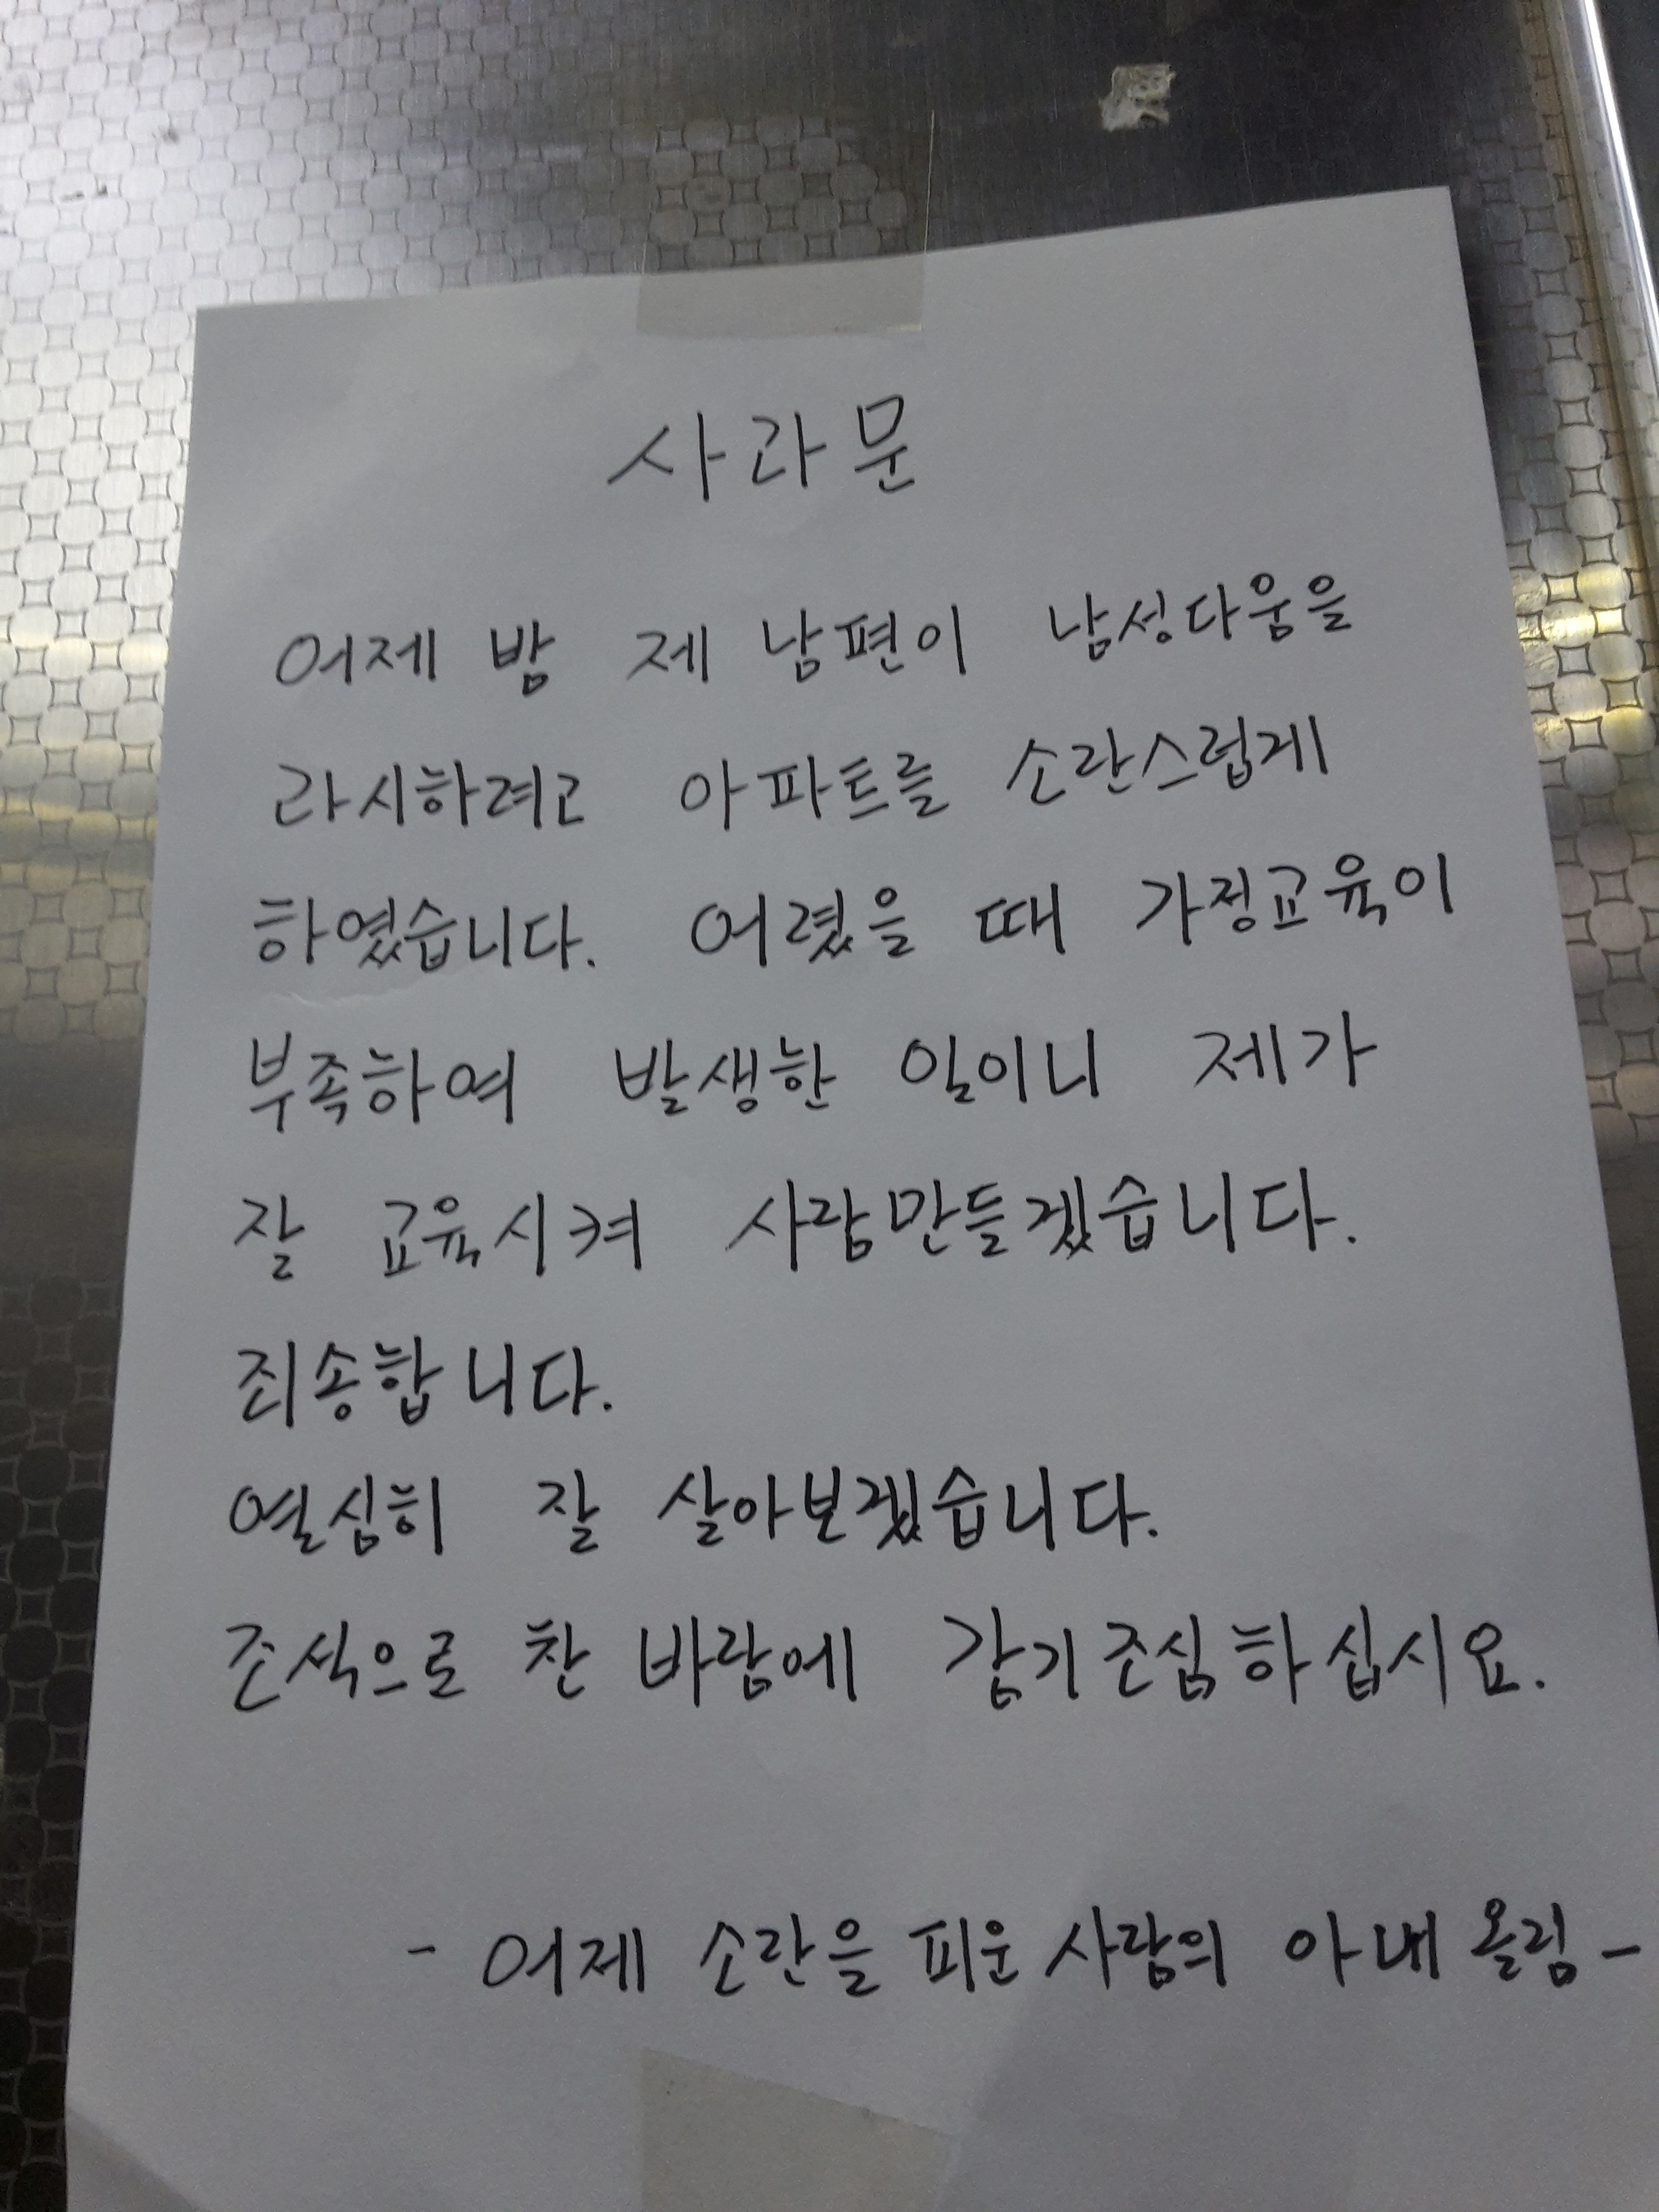 사과문
어제 밤 제 남편이 남성다움을
과시하려고 아파트를 소란스럽게
하였습니다. 어렸을 때 가정교육이
부족하여 발생한 일이니 제가
잘 교육시켜 사람만들겠습니다.
죄송합니다.
열심히 잘 살아보겠습니다.
조석으로 찬 바람에 감기조심하십시요.
- 어제 소란을 피운 사람의 아내 올림 -